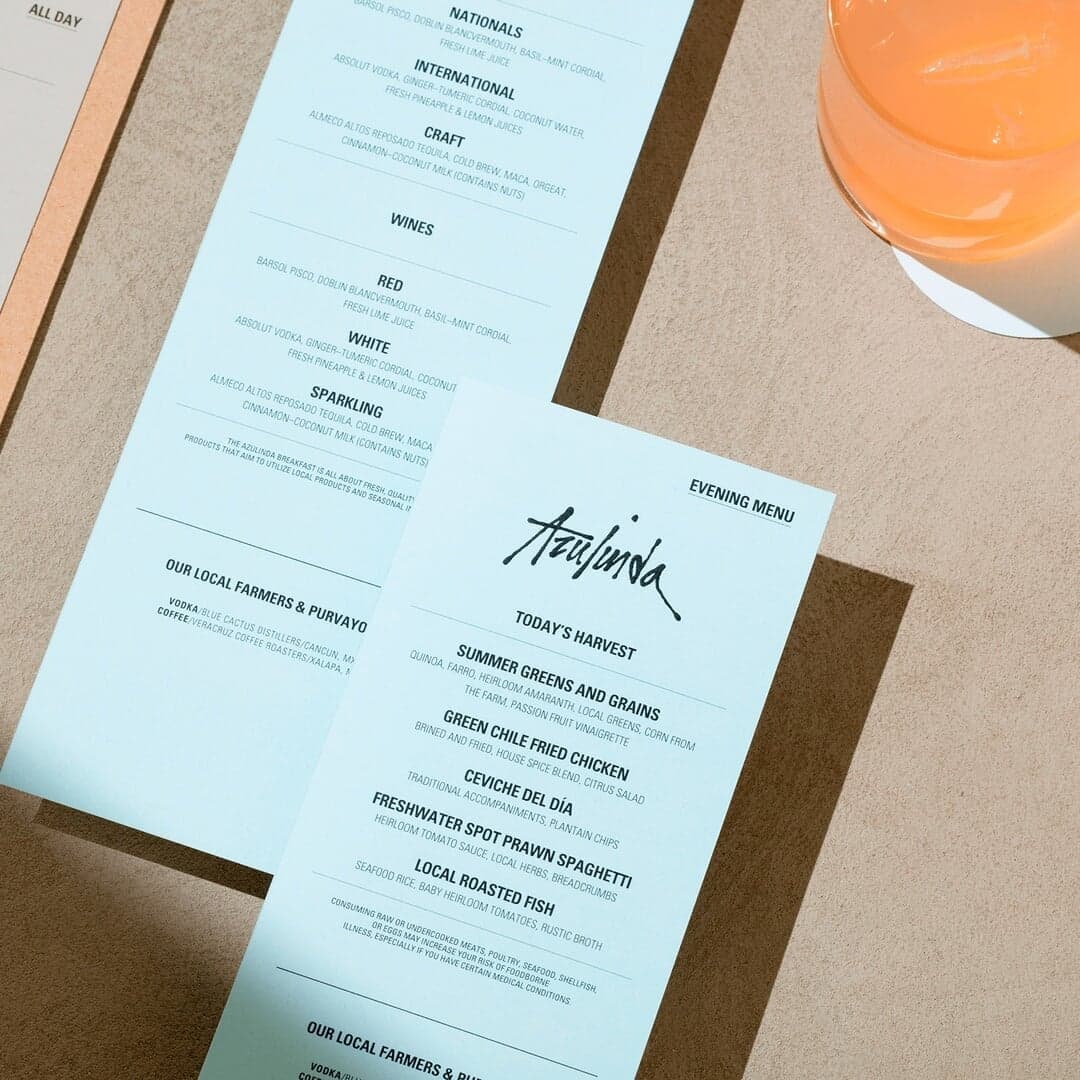 ALL DAY
NATIONALS
BARSOL PISCO, DOBLIN BLANCVERMOUTH, BASIL–MINT CORDIAL,
FRESH LIME JUICE
INTERNATIONAL
ABSOLUT VODKA, GINGER–TUMERIC CORDIAL, COCONUT WATER,
FRESH PINEAPPLE & LEMON JUICES
CRAFT
ALMECO ALTOS REPOSADO TEQUILA, COLD BREW, MACA, ORGEAT,
CINNAMON–COCONUT MILK (CONTAINS NUTS)
WINES
RED
BARSOL PISCO, DOBLIN BLANCVERMOUTH, BASIL–MINT CORDIAL,
FRESH LIME JUICE
WHITE
ABSOLUT VODKA, GINGER–TUMERIC CORDIAL, COCONUT
FRESH PINEAPPLE & LEMON JUICES
SPARKLING
ALMECO ALTOS REPOSADO TEQUILA, COLD BREW, MACA
CINNAMON–COCONUT MILK (CONTAINS NUTS)
THE AZULINDA BREAKFAST IS ALL ABOUT FRESH, QUALITY
PRODUCTS THAT AIM TO UTILIZE LOCAL PRODUCTS AND SEASONAL
OUR LOCAL FARMERS & PURVAYO
VODKA/BLUE CACTUS DISTILLERS/CANCUN, MX
COFFEE/VERACRUZ COFFEE ROASTERS/XALAPA,
EVENING MENU
Azulinda
TODAY'S HARVEST
SUMMER GREENS AND GRAINS
QUINOA, FARRO, HEIRLOOM AMARANTH, LOCAL GREENS, CORN FROM
THE FARM, PASSION FRUIT VINAIGRETTE
GREEN CHILE FRIED CHICKEN
BRINED AND FRIED, HOUSE SPICE BLEND, CITRUS SALAD
CEVICHE DEL DÍA
TRADITIONAL ACCOMPANIMENTS, PLANTAIN CHIPS
FRESHWATER SPOT PRAWN SPAGHETTI
HEIRLOOM TOMATO SAUCE, LOCAL HERBS, BREADCRUMBS
LOCAL ROASTED FISH
SEAFOOD RICE, BABY HEIRLOOM TOMATOES, RUSTIC BROTH
CONSUMING RAW OR UNDERCOOKED MEATS, POULTRY, SEAFOOD, SHELLFISH,
OR EGGS MAY INCREASE YOUR RISK OF FOODBORNE
ILLNESS, ESPECIALLY IF YOU HAVE CERTAIN MEDICAL CONDITIONS.
OUR LOCAL FARMERS & PUR
VODKA/BLU